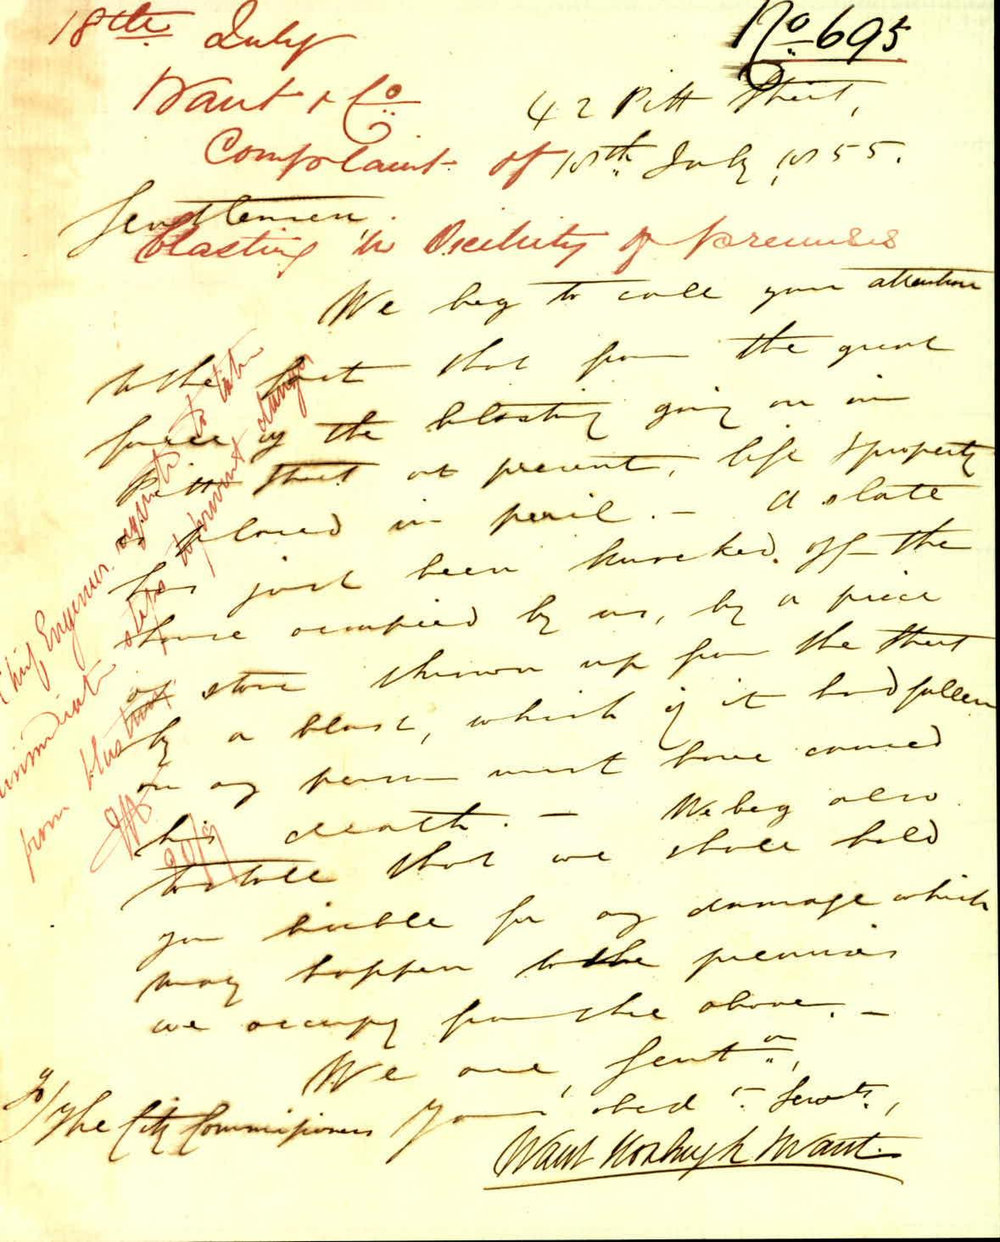 18th July
No. 695
Want & Co.
42 Pitt Street,
Complaint of
18th July, 1855.
Gentlemen,
blasting in Vicinity of premises
We beg to call your attention
to the fact that from the great
force of the blasting going on in
Pitt Street at present, life & property
is placed in peril. – A slate
has just been knocked off the
house occupied by us, by a piece
of stone thrown up from the Street
by a blast, which if it had fallen
on any person must have caused
his death. – We beg also
to state that we shall hold
you liable for any damage which
may happen to the premises
we occupy from the above. –
We are, Gentn.,
Your obed. Servts.,
To/ The City Commissioners
Want Want.
Chief Engineer requested to take
immediate steps to prevent danger
from blasting
20/7